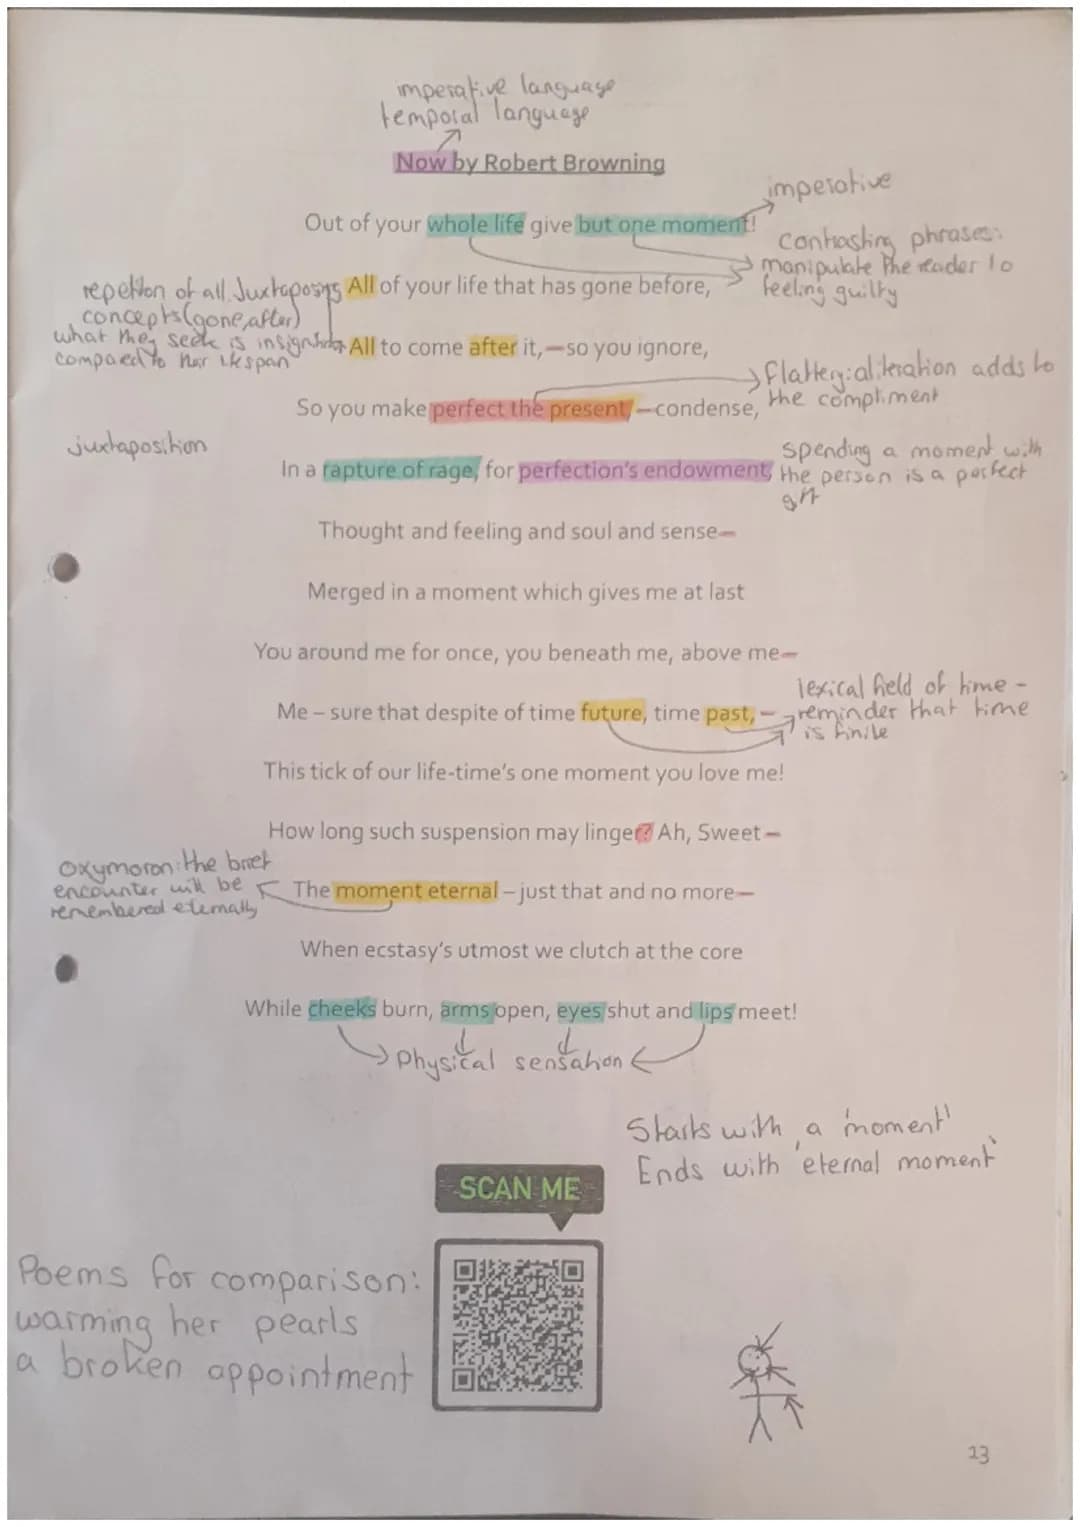 imperative language
temporal language
Now by Robert Browning
imperative
Out of your whole life give but one moment!
contrasting phrases:
manipulate the reader to
feeling guilty
All of your life that has gone before,
repetition of all. Juxtaposes
concepts (gone, after)
what they seek is insignificant
compared to her lifespan
All to come after it,—so you ignore,
flattery: aliteration adds to
the compliment
So you make perfect the present,—condense,
juxtaposition
In a rapture of rage, for perfection's endowment,
spending a moment with
the person is a perfect
gift
Thought and feeling and soul and sense—
Merged in a moment which gives me at last
You around me for once, you beneath me, above me—
Me – sure that despite of time future, time past,—
lexical field of time -
reminder that time
is finite
This tick of our life-time's one moment you love me!
How long such suspension may linger? Ah, Sweet—
oxymoron: the brief
encounter will be
remembered eternally
The moment eternal – just that and no more—
When ecstasy's utmost we clutch at the core
While cheeks burn, arms open, eyes shut and lips meet!
Physical sensation
Starts with a 'moment'
Ends with 'eternal moment'
SCAN ME
Poems for comparison:
warming her pearls
a broken appointment
23